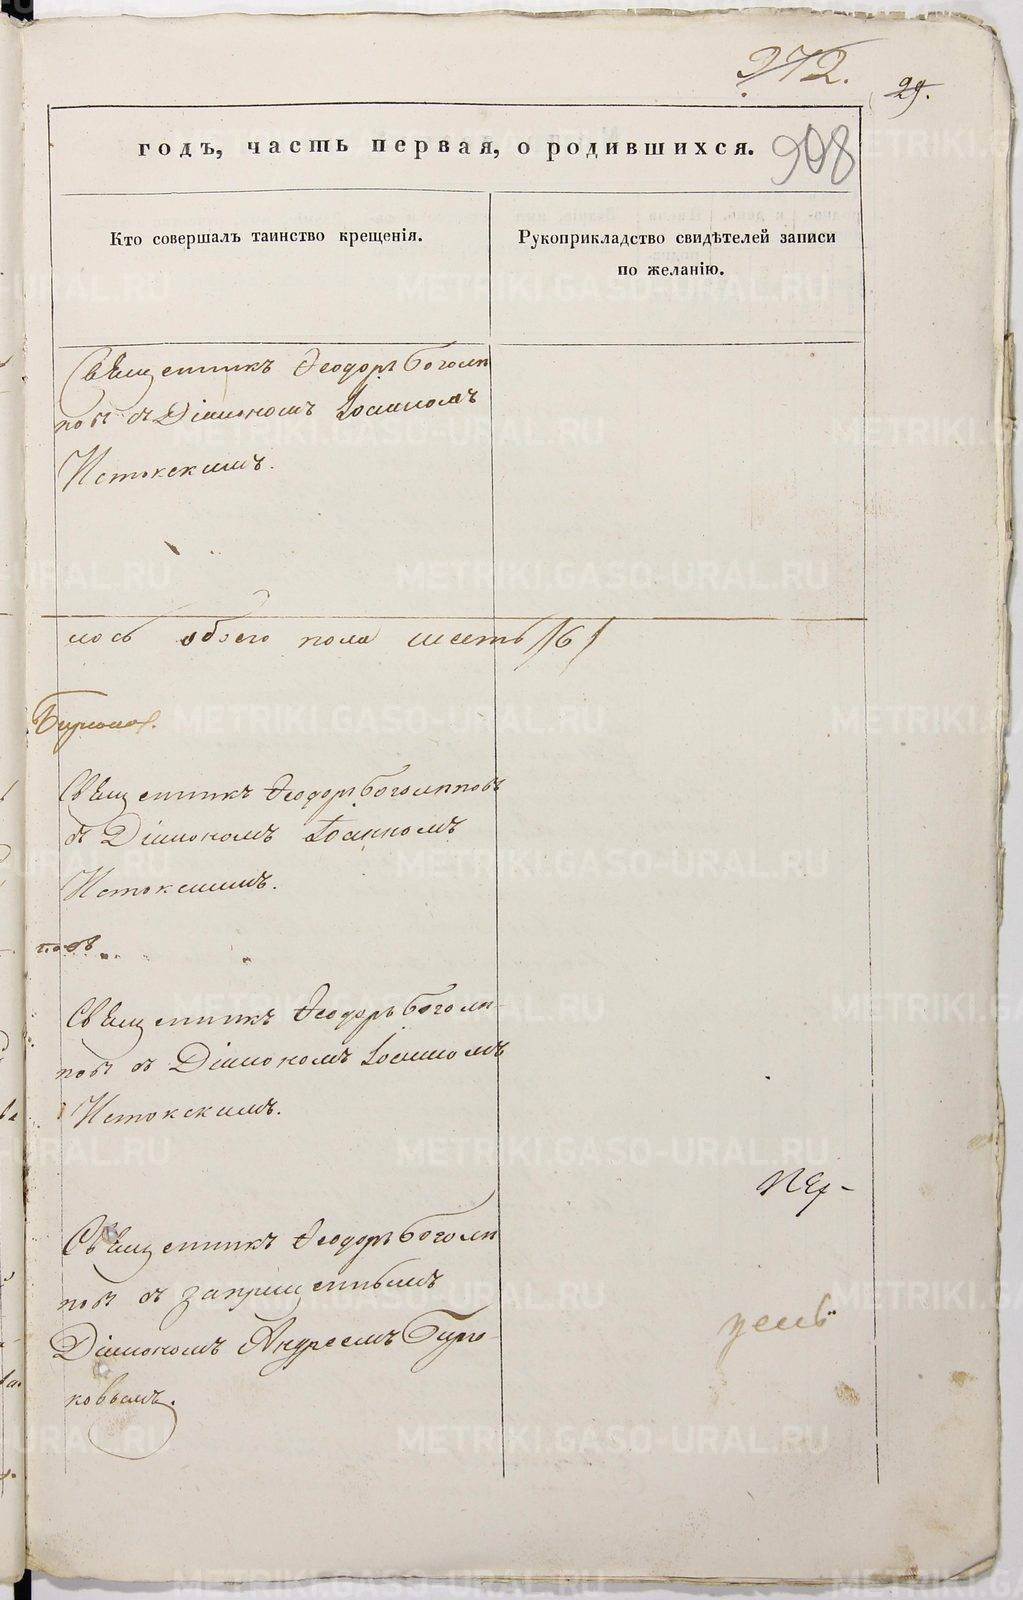 272.
29.
908
годъ, часть первая, о родившихся.
Кто совершалъ таинство крещенія.
Рукоприкладство свидѣтелей записи
по желанію.
Священникъ Ѳеодоръ Боголѣ
повъ съ Діакономъ Іоанномъ
Истокскимъ.
лось обоего пола шесть /6/
Священникъ Ѳеодоръ Боголѣповъ
съ Діакономъ Іоанномъ
Истокскимъ.
повъ
Священникъ Ѳеодоръ Боголѣ-
повъ съ Діакономъ Іоанномъ
Истокскимъ.
Священникъ Ѳеодоръ Боголѣ
повъ съ запрещеннымъ
Діакономъ Андреемъ Бирю
ковымъ.
METRIKI.GASO-URAL.RU